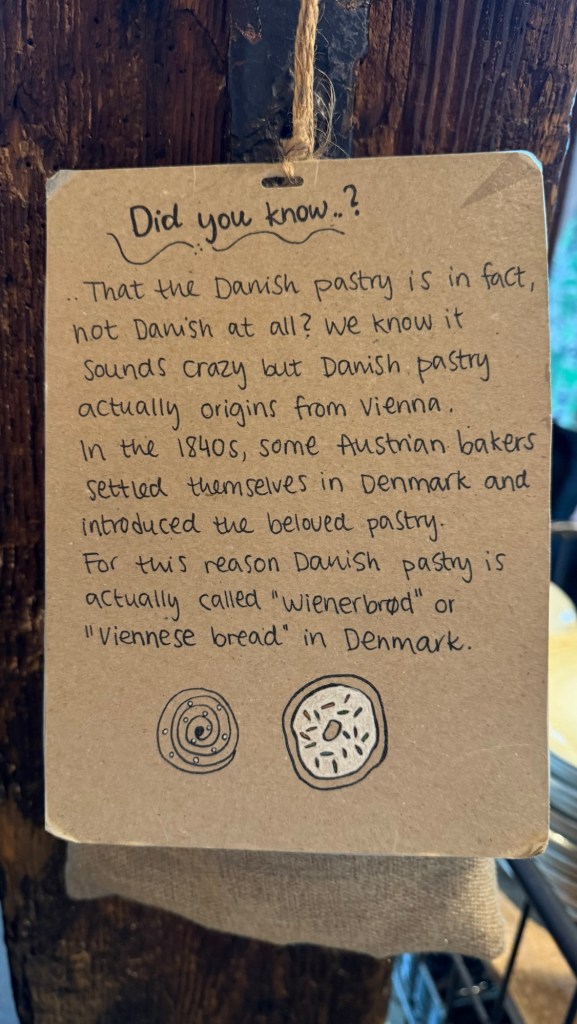 Did you know..?
..That the Danish pastry is in fact,
not Danish at all? We know it
sounds crazy but Danish pastry
actually origins from Vienna.
In the 1840s, some Austrian bakers
settled themselves in Denmark and
introduced the beloved pastry.
For this reason Danish pastry is
actually called "wienerbrød" or
"Viennese bread" in Denmark.